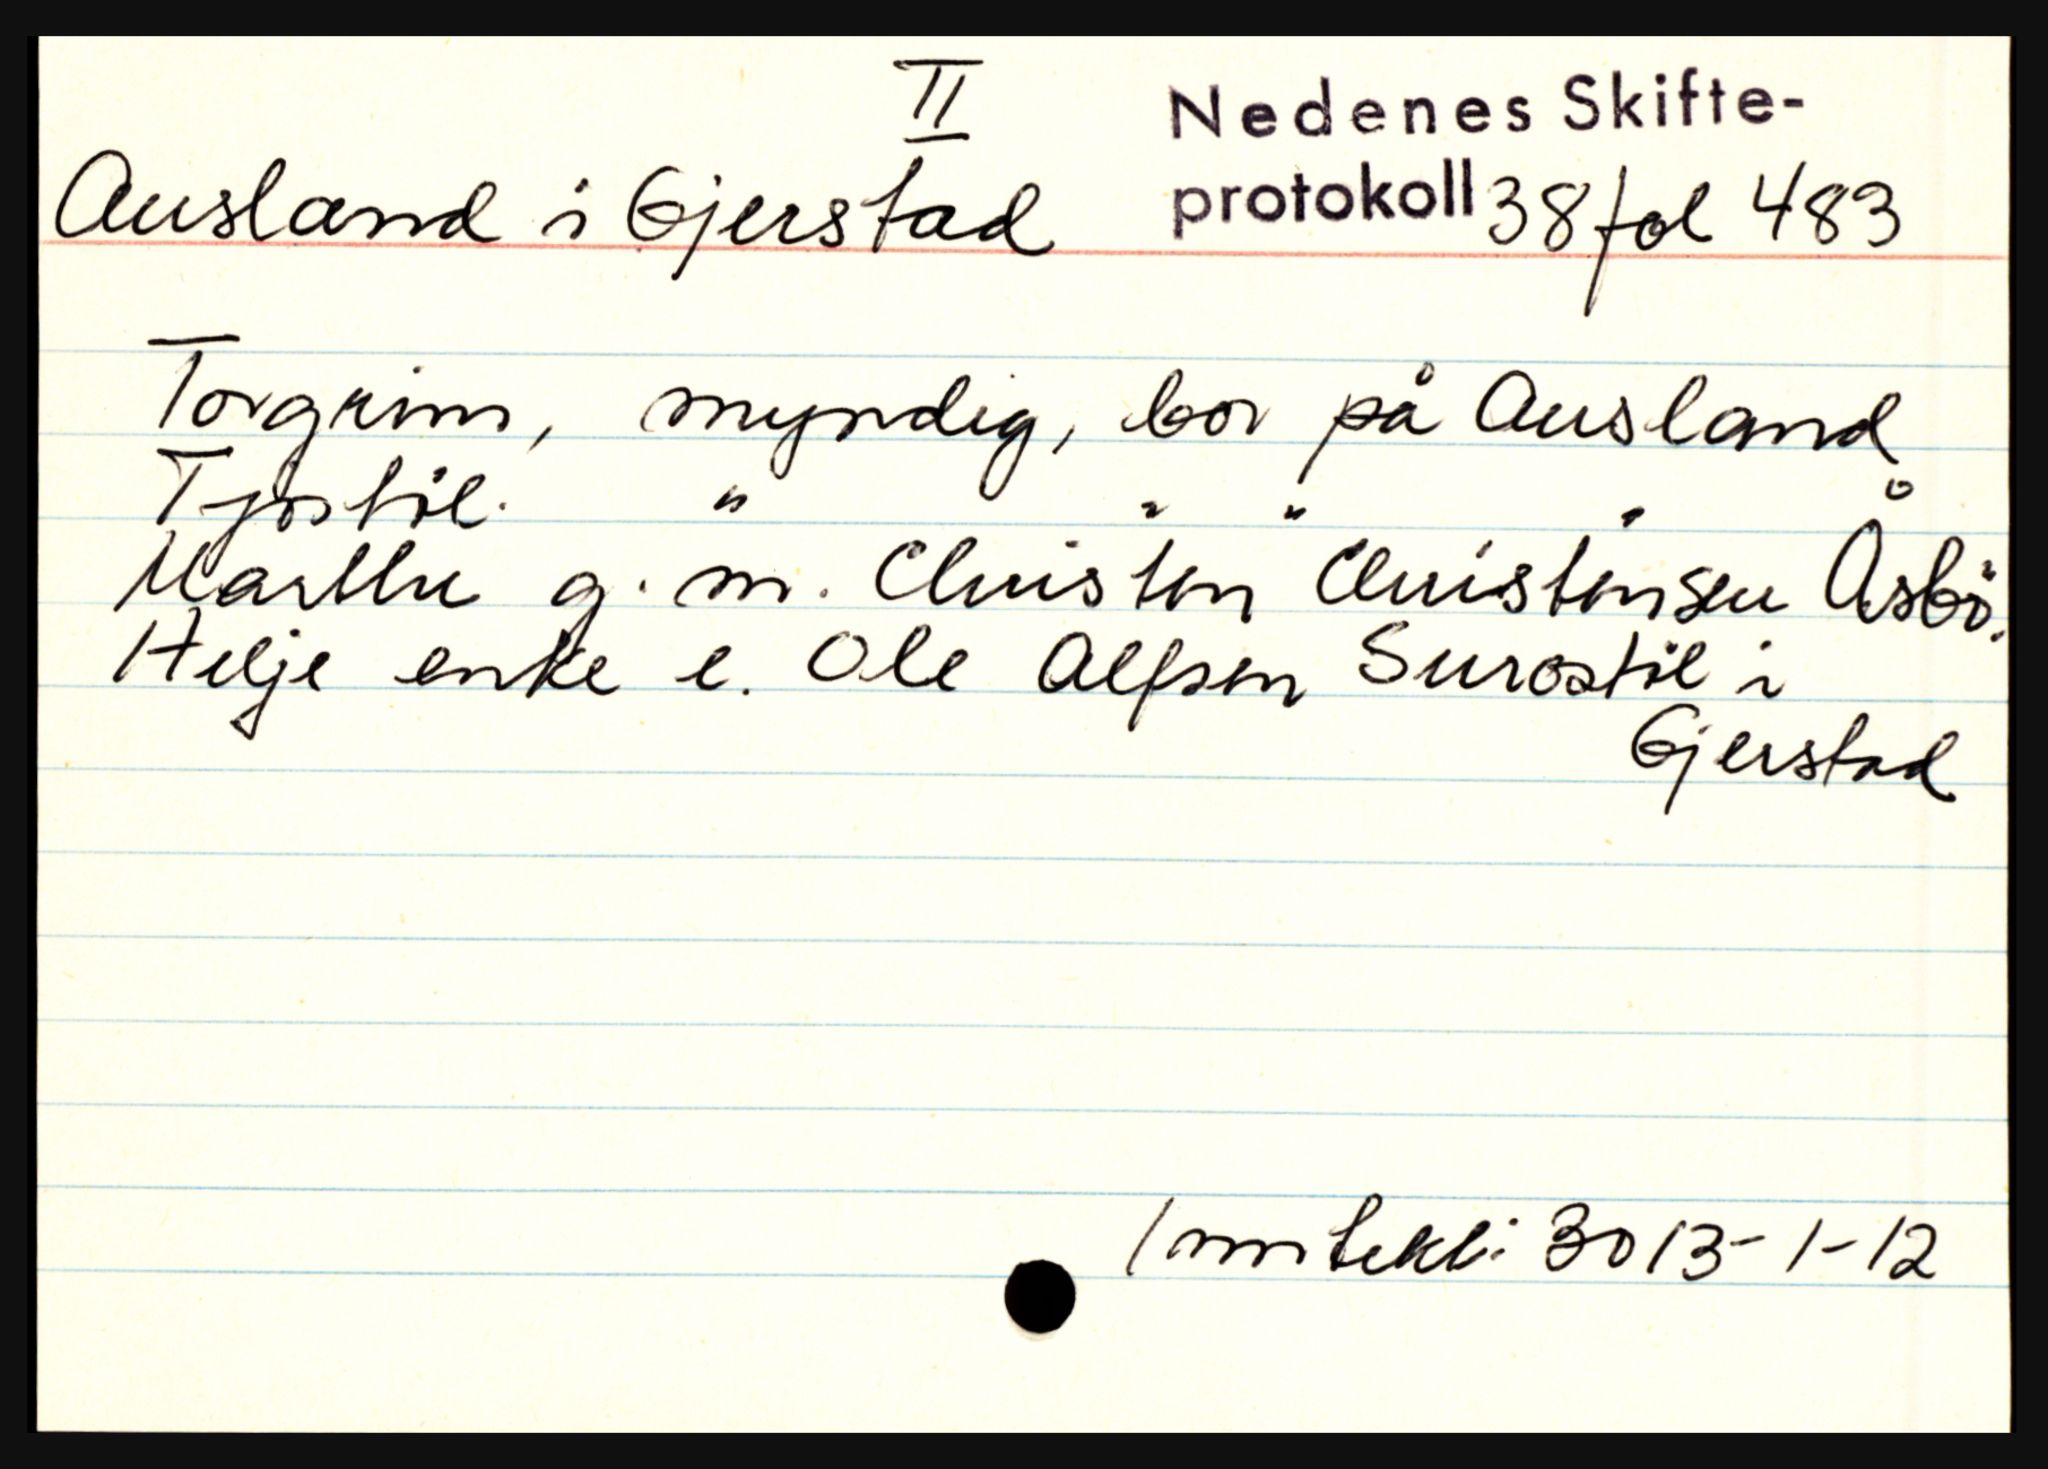 II
Nedenes Skifte-
Ausland i Gjerstad protokoll 38 fol 483
Torgrim, myndig, bor på Ausland
Tjöstöl. " " " "
Marthe g. m. Christen Christensen Åsbö.
Helje enke e. Ole Alfsen Surostöl i
Gjerstad
Inntekt: 3013-1-12